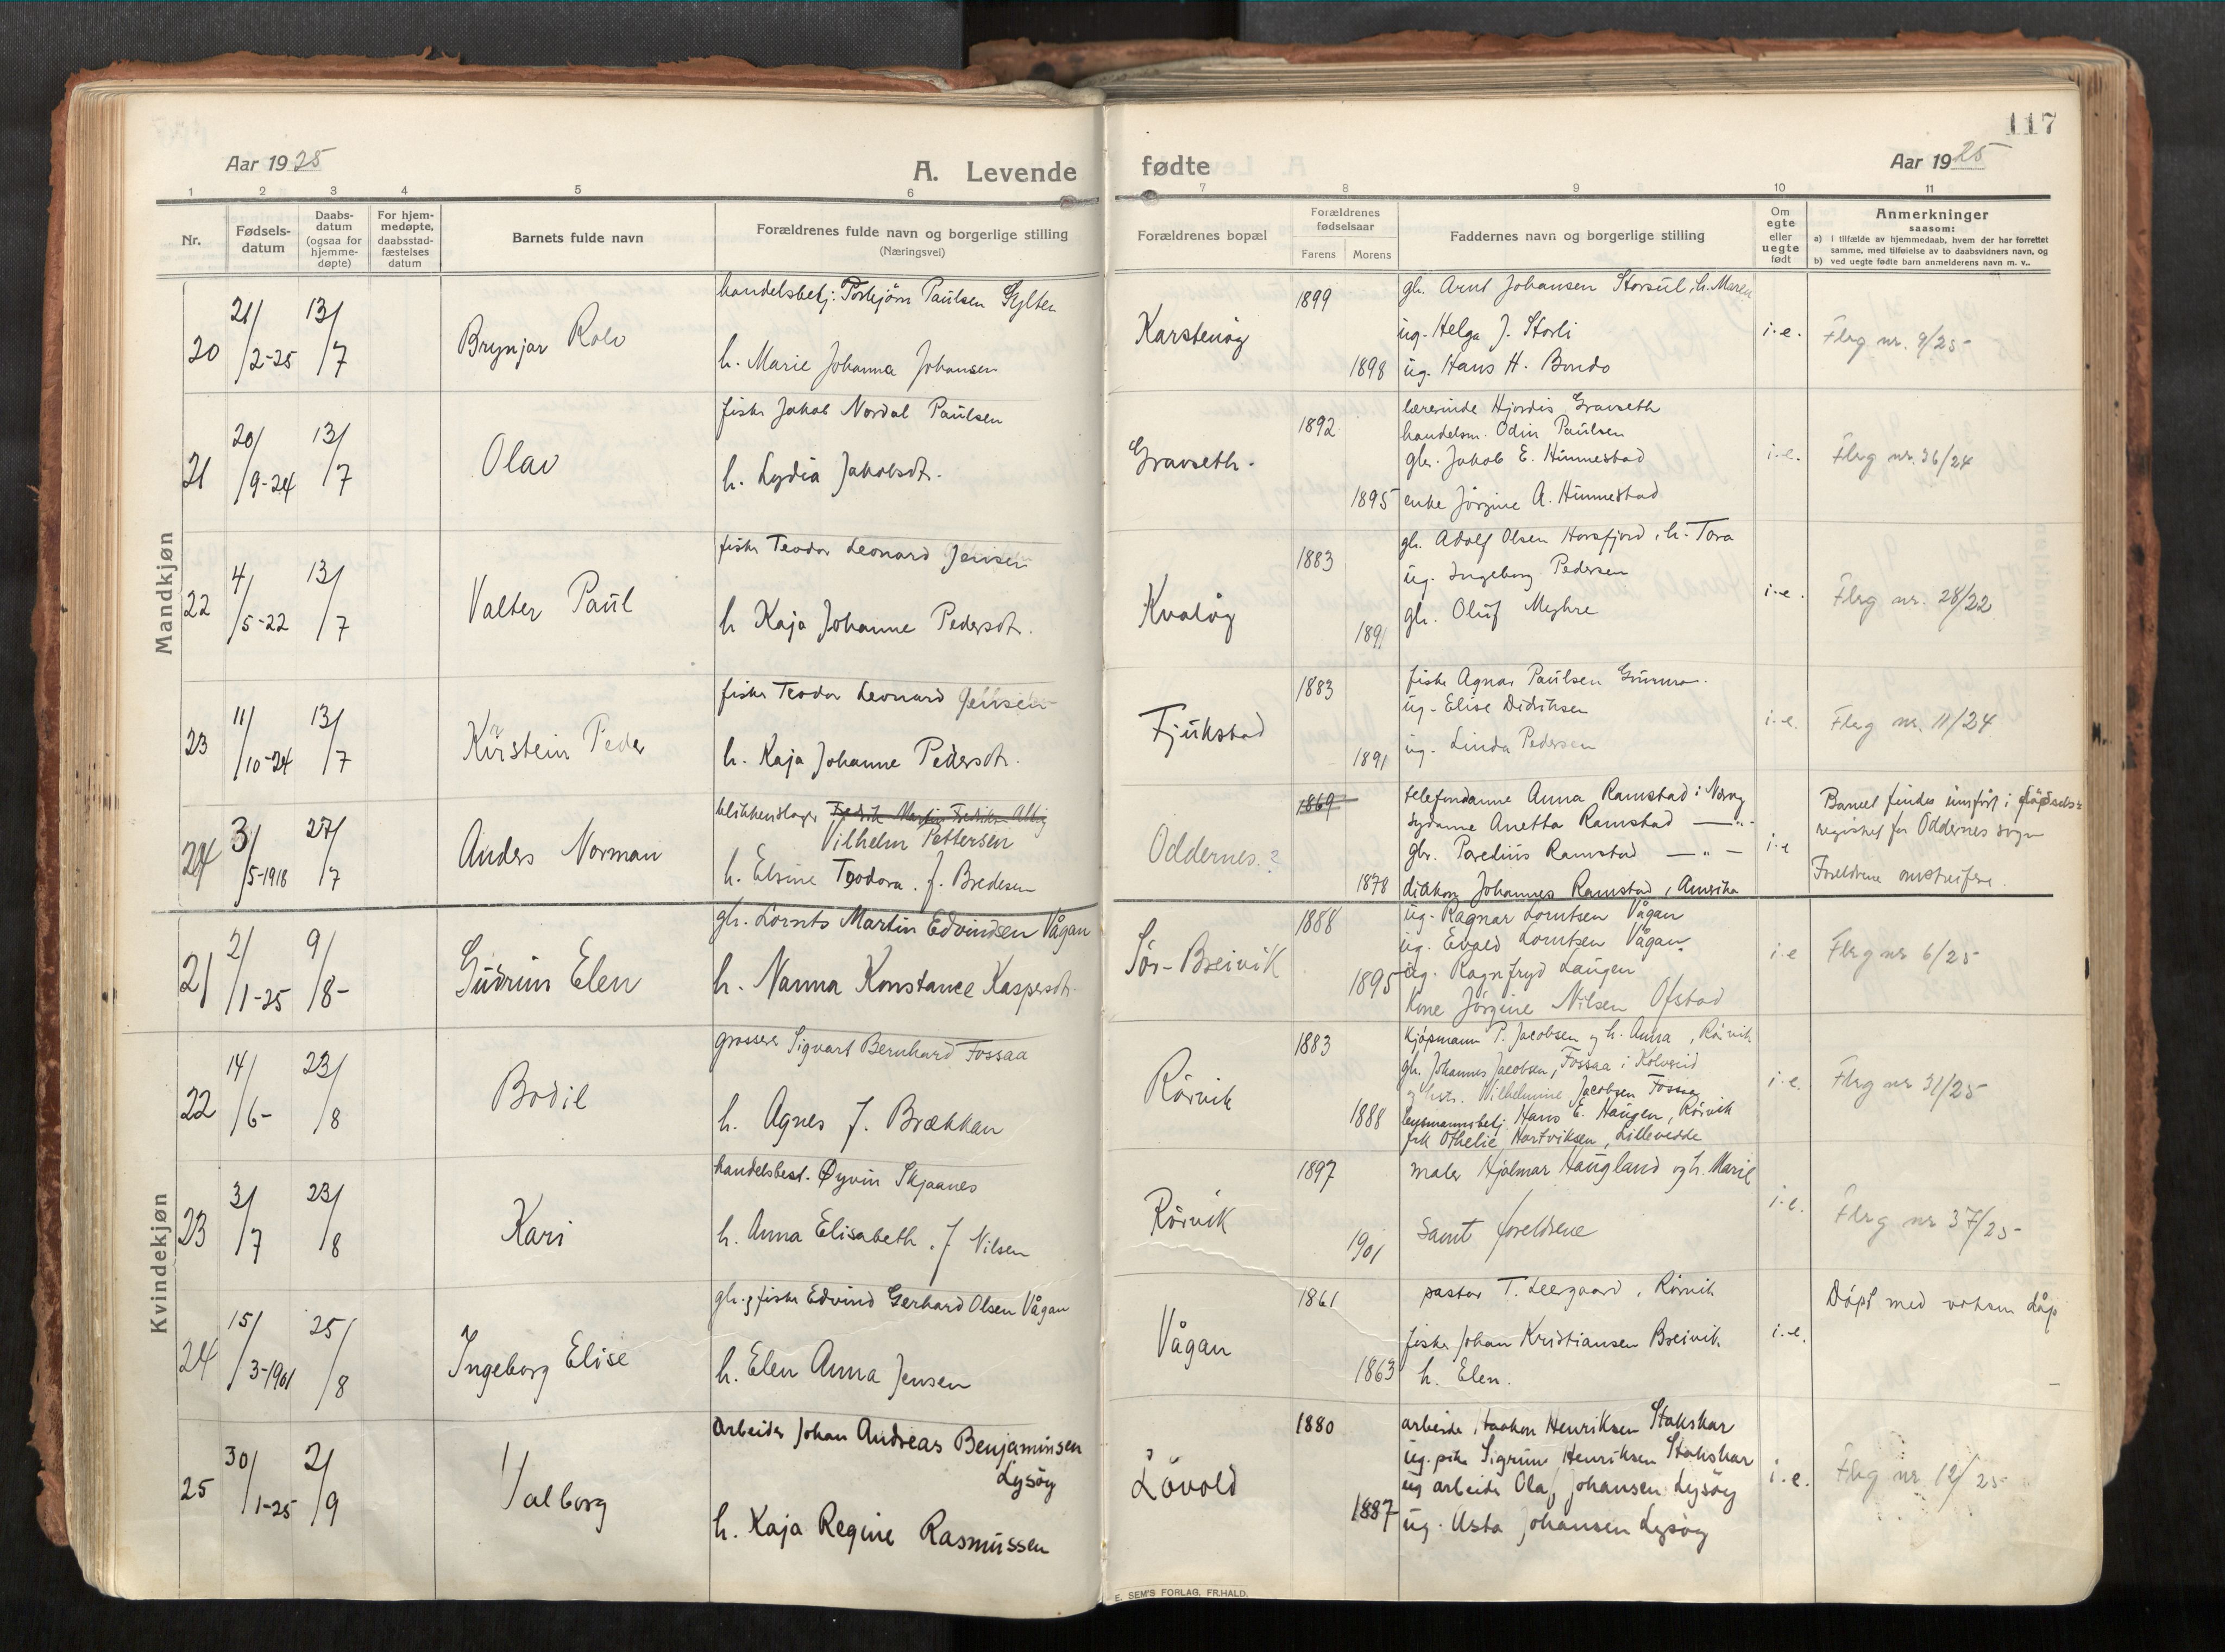 117
Aar 1925
A. Levende
fødte
Aar 1925
1 2 3 4 5 6 7 8 9 10 11
Nr.
Fødsels-
datum
Daabs-
datum
(ogsaa for
hjemme-
døpte)
For hjem-
medøpte,
daabsstad-
fæstelses
datum
Barnets fulde navn
Forældrenes fulde navn og borgerlige stilling
(Næringsvei)
Forældrenes bopæl
Forældrenes
fødselsaar
Farens Morens
Faddernes navn og borgerlige stilling
Om
egte
eller
uegte
født
Anmerkninger
saasom:
a) i tilfælde av hjemmedaab, hvem der har forrettet
samme, med tilføielse av to daabsvidners navn, og
b) ved uegte fødte barn anmelderens navn m. v..
Mandkjøn
20
21/2-25
13/7
Brynjar Rolv
handelsbetj. Torbjörn Paulsen Sylten
h. Marie Johanna Johansen
Karstenöy
1899
1898
gb. Arnt Johansen Storsul, h. Maren
ug. Helga J. Storli
ug. Hans H. Bondo
i.e.
Flrg nr. 9/25
21
20/9-24
13/7
Olav
fisker Jakob Nordal Paulsen
h. Lydia Jakobsdtr.
Gravseth.
1892
1895
lærerinde Hjordis Gravseth
handelsm. Odin Paulsen
gbr. Jakob E. Himmestad
enke Jörgine A. Himmestad
i.e.
Flrg nr. 36/24
22
4/5-22
13/7
Valter Paul
fisker Teodor Leonard Jensen
h Kaja Johanne Pedersdtr.
Kvalöy
1883
1891
gb. Adolf Olsen Horsfjord, h. Tora
ug. Ingeborg Pedersen
gb. Oluf Myhre
i.e.
Flrg nr. 28/22
23
11/10-24
13/7
Kurstein Peder
fisker Teodor Leonard Jensen
h. Kaja Johanne Pedersdtr.
Fjukstad
1883
1891
fisker Agnar Paulsen
ug. Elise Didriksen
ug. Linda Pedersen
i.e.
Flrg nr. 11/24
24
3/5-1918
27/7
Anders Norman
blikkenslager Fredrik Martin Fredriksen
Vilhelm Pettersen
h. Elsine Teodora f. Bredesen
Oddernes.?
1869
1878
telefondame Anna Ramstad i Norge
sydame Anetta Ramstad —"—
gbr. Paredius Ramstad —"—
diakon Johannes Ramstad, Amerika
i.e
Barnet findes innfört i dåpsregistret for Oddernes sogn
Foreldrene omstreifere.
Kvindekjøn
21
2/1-25
9/8-
Gudrun Elen
gb. Lornts Martin Edvindsen Vågan
h. Nanna Konstance Kaspersdtr.
Sör-Breivik
1888
1895
ug. Ragnar Lorntsen Vågan
ug. Evald Lorntsen Vågan.
ug. Ragnfryd Laugen
Kone Jörgine Nilsen Ofstad
i.e
Flrg nr 6/25
22
14/6-
23/8
Bodil
grosserer Sigvart Bernhard Fossaa
h. Agnes f. Brækkan
Rörvik
1883
1888
Kjöpmann P. Jacobsen og h. Anna, Rörvik
gb. Johannes Jacobsen, Fossaa i Kolvereid
og hstr. Vilhelmine Jacobsen Fossaa
lensmannsbetj. Hans E. Haugen, Rörvik
frk Othelie Hartviksen, Lillevedde
i.e.
Flrg nr 31/25
23
3/7
23/8
Kari
handelsbest. Øyvin Skjaanes
h. Anna Elisabeth f. Nilsen
Rörvik
1897
1901
maler Hjalmar Haugland og h. Marie
samt foreldrene
i.e.
Flrg nr 37/25
24
15/3-1901
25/8
Ingeborg Elise
gb. og fisker Edvind Gerhard Olsen Vågan
h. Elen Anna Jensen
Vågan
1861
1863
pastor T. Leegaard, Rörvik
fisker Johan Kristiansen Breivik
h. Elen.
i.e.
Döpt med voksen dåp
25
30/1-25
2/9
Valborg
arbeider Johan Andreas Benjaminsen
Lysöy
h. Kaja Regine Rasmussen
Lövold
1880
1887
arbeider Haakon Henriksen Stakskar
ug. pike Sigrun Henriksen Stakskar
ug arbeider Olaf Johansen Lysöy
ug. Asta Johansen Lysöy
i.e.
Flrg nr 12/25
E. SEM'S FORLAG, FR.HALD.